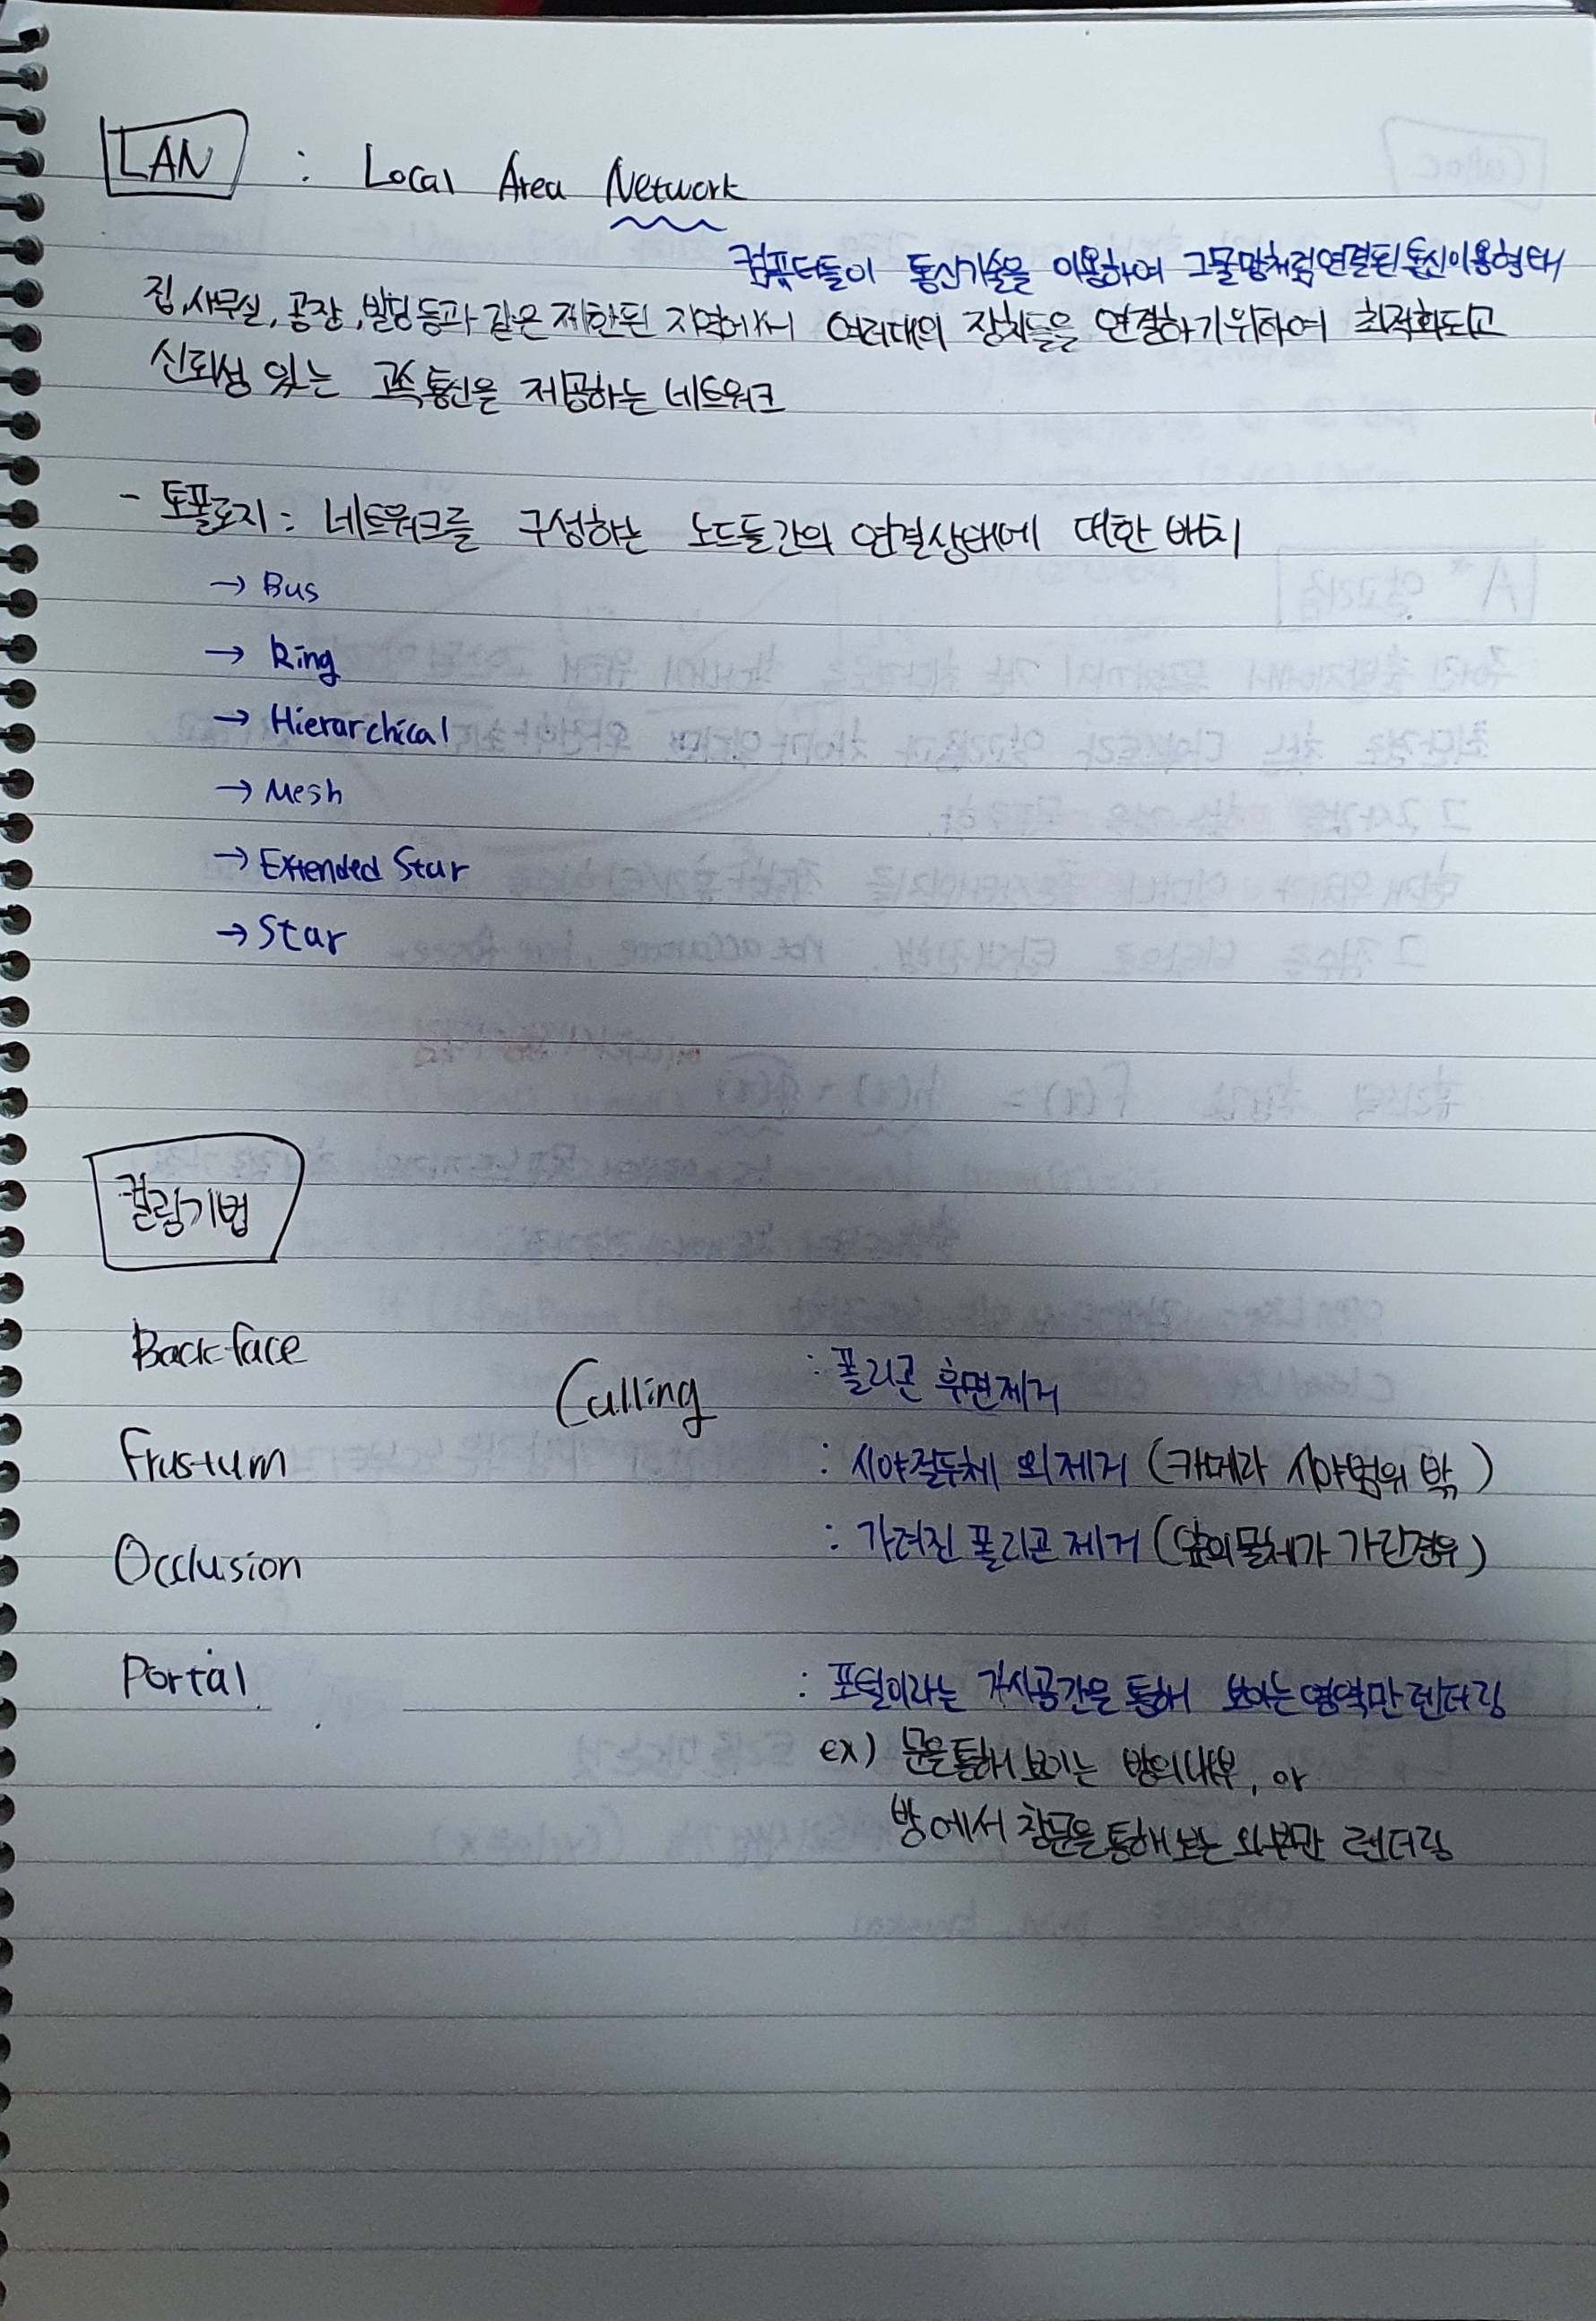 LAN : Local Area Network
컴퓨터들이 통신기술을 이용하여 그물망처럼 연결된 통신이용형태
집, 사무실, 공장, 빌딩 등과 같은 제한된 지역에서 여러대의 장치들을 연결하기위하여 최적화되고
신뢰성 있는 고속통신을 제공하는 네트워크
- 토폴로지 : 네트워크를 구성하는 노드들간의 연결상태에 대한 배치
→ Bus
→ Ring
→ Hierarchical
→ Mesh
→ Extended Star
→ Star
컬링기법
Back-face
Culling
: 폴리곤 후면제거
Frustum : 시야절두체 외 제거 (카메라 시야범위 밖)
Occlusion : 가려진 폴리곤 제거 (앞의물체가 가린경우)
Portal : 포털이라는 가시공간을 통해 보이는 영역만 렌더링
ex) 문을통해 보이는 방의내부, or
방에서 창문을 통해보는 외부만 렌더링